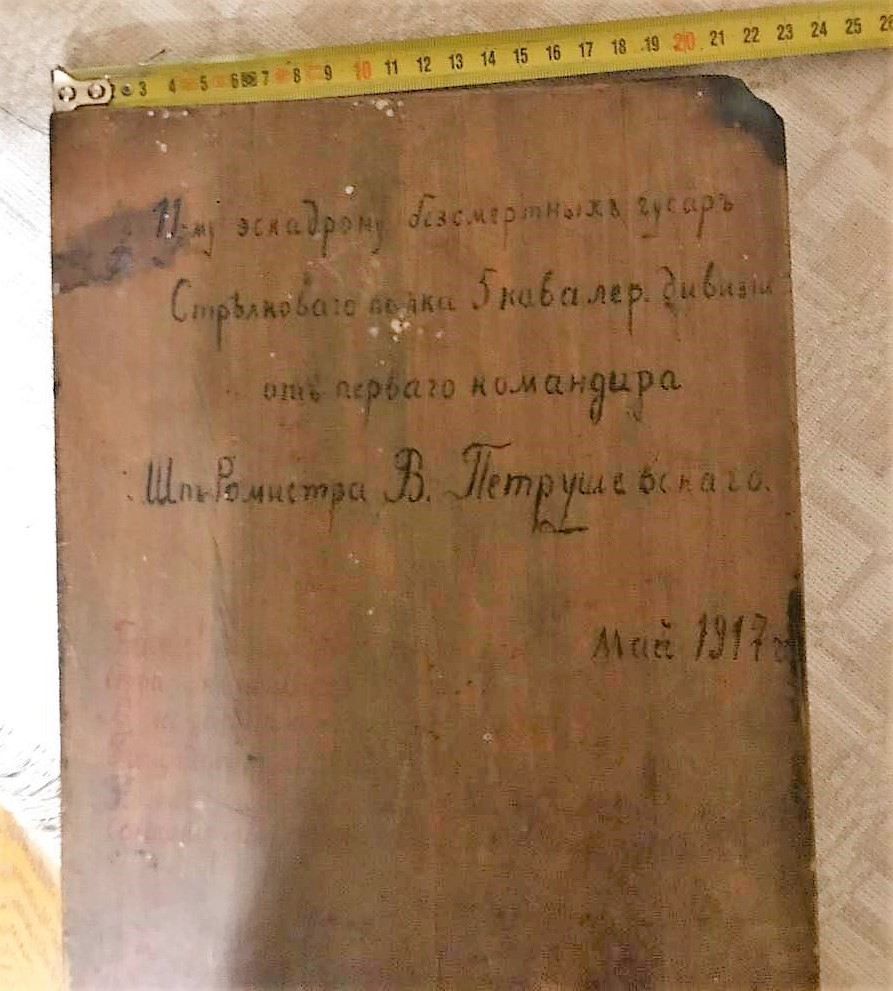 3 4 5 6 7 8 9 10 11 12 13 14 15 16 17 18 19 20 21 22 23 24 25
эскадрону безсмертныхъ гусаръ
Стрѣлковаго полка 5 кавалер. дивизіи
отъ перваго командира
Штъ Ромистра В. Петрушевскаго.
май 1917 г